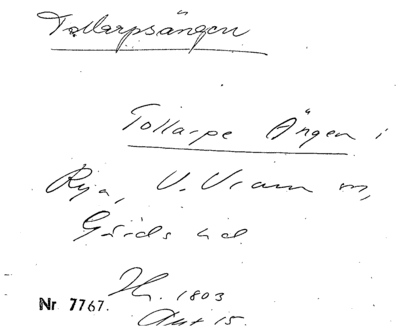 Tollarpsängen
Tollarpe Ängen i
Rya, V. Vram sn,
Gärds hd
Hr. 1803
Nr 7767.
Akt 15.